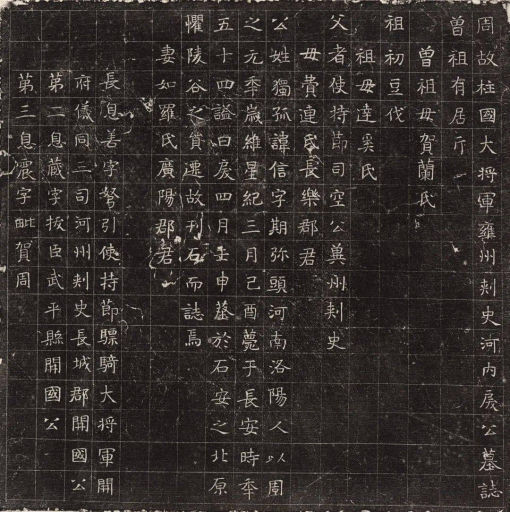 周故柱國大將軍雍州刾史河內戾公墓誌
曾祖有居斤
曾祖母賀蘭氏
祖初豆伐
祖母達奚氏
父者使持節司空公兾州刾史
母貴連氏長樂郡君
公姓獨孤諱信字期弥頭河南洛陽人以周
之元秊歲維星紀三月己酉薨于長安時秊
五十四謚曰戾四月壬申墓於石安之北原
懼陵谷之貿遷故刋石而誌焉
妻如羅氏廣陽郡君
長息善字弩引使持節驃騎大將軍開
府儀同三司河州刾史長城郡開國公
第二息藏字拔臣武平縣開國公
第三息震字毗賀周